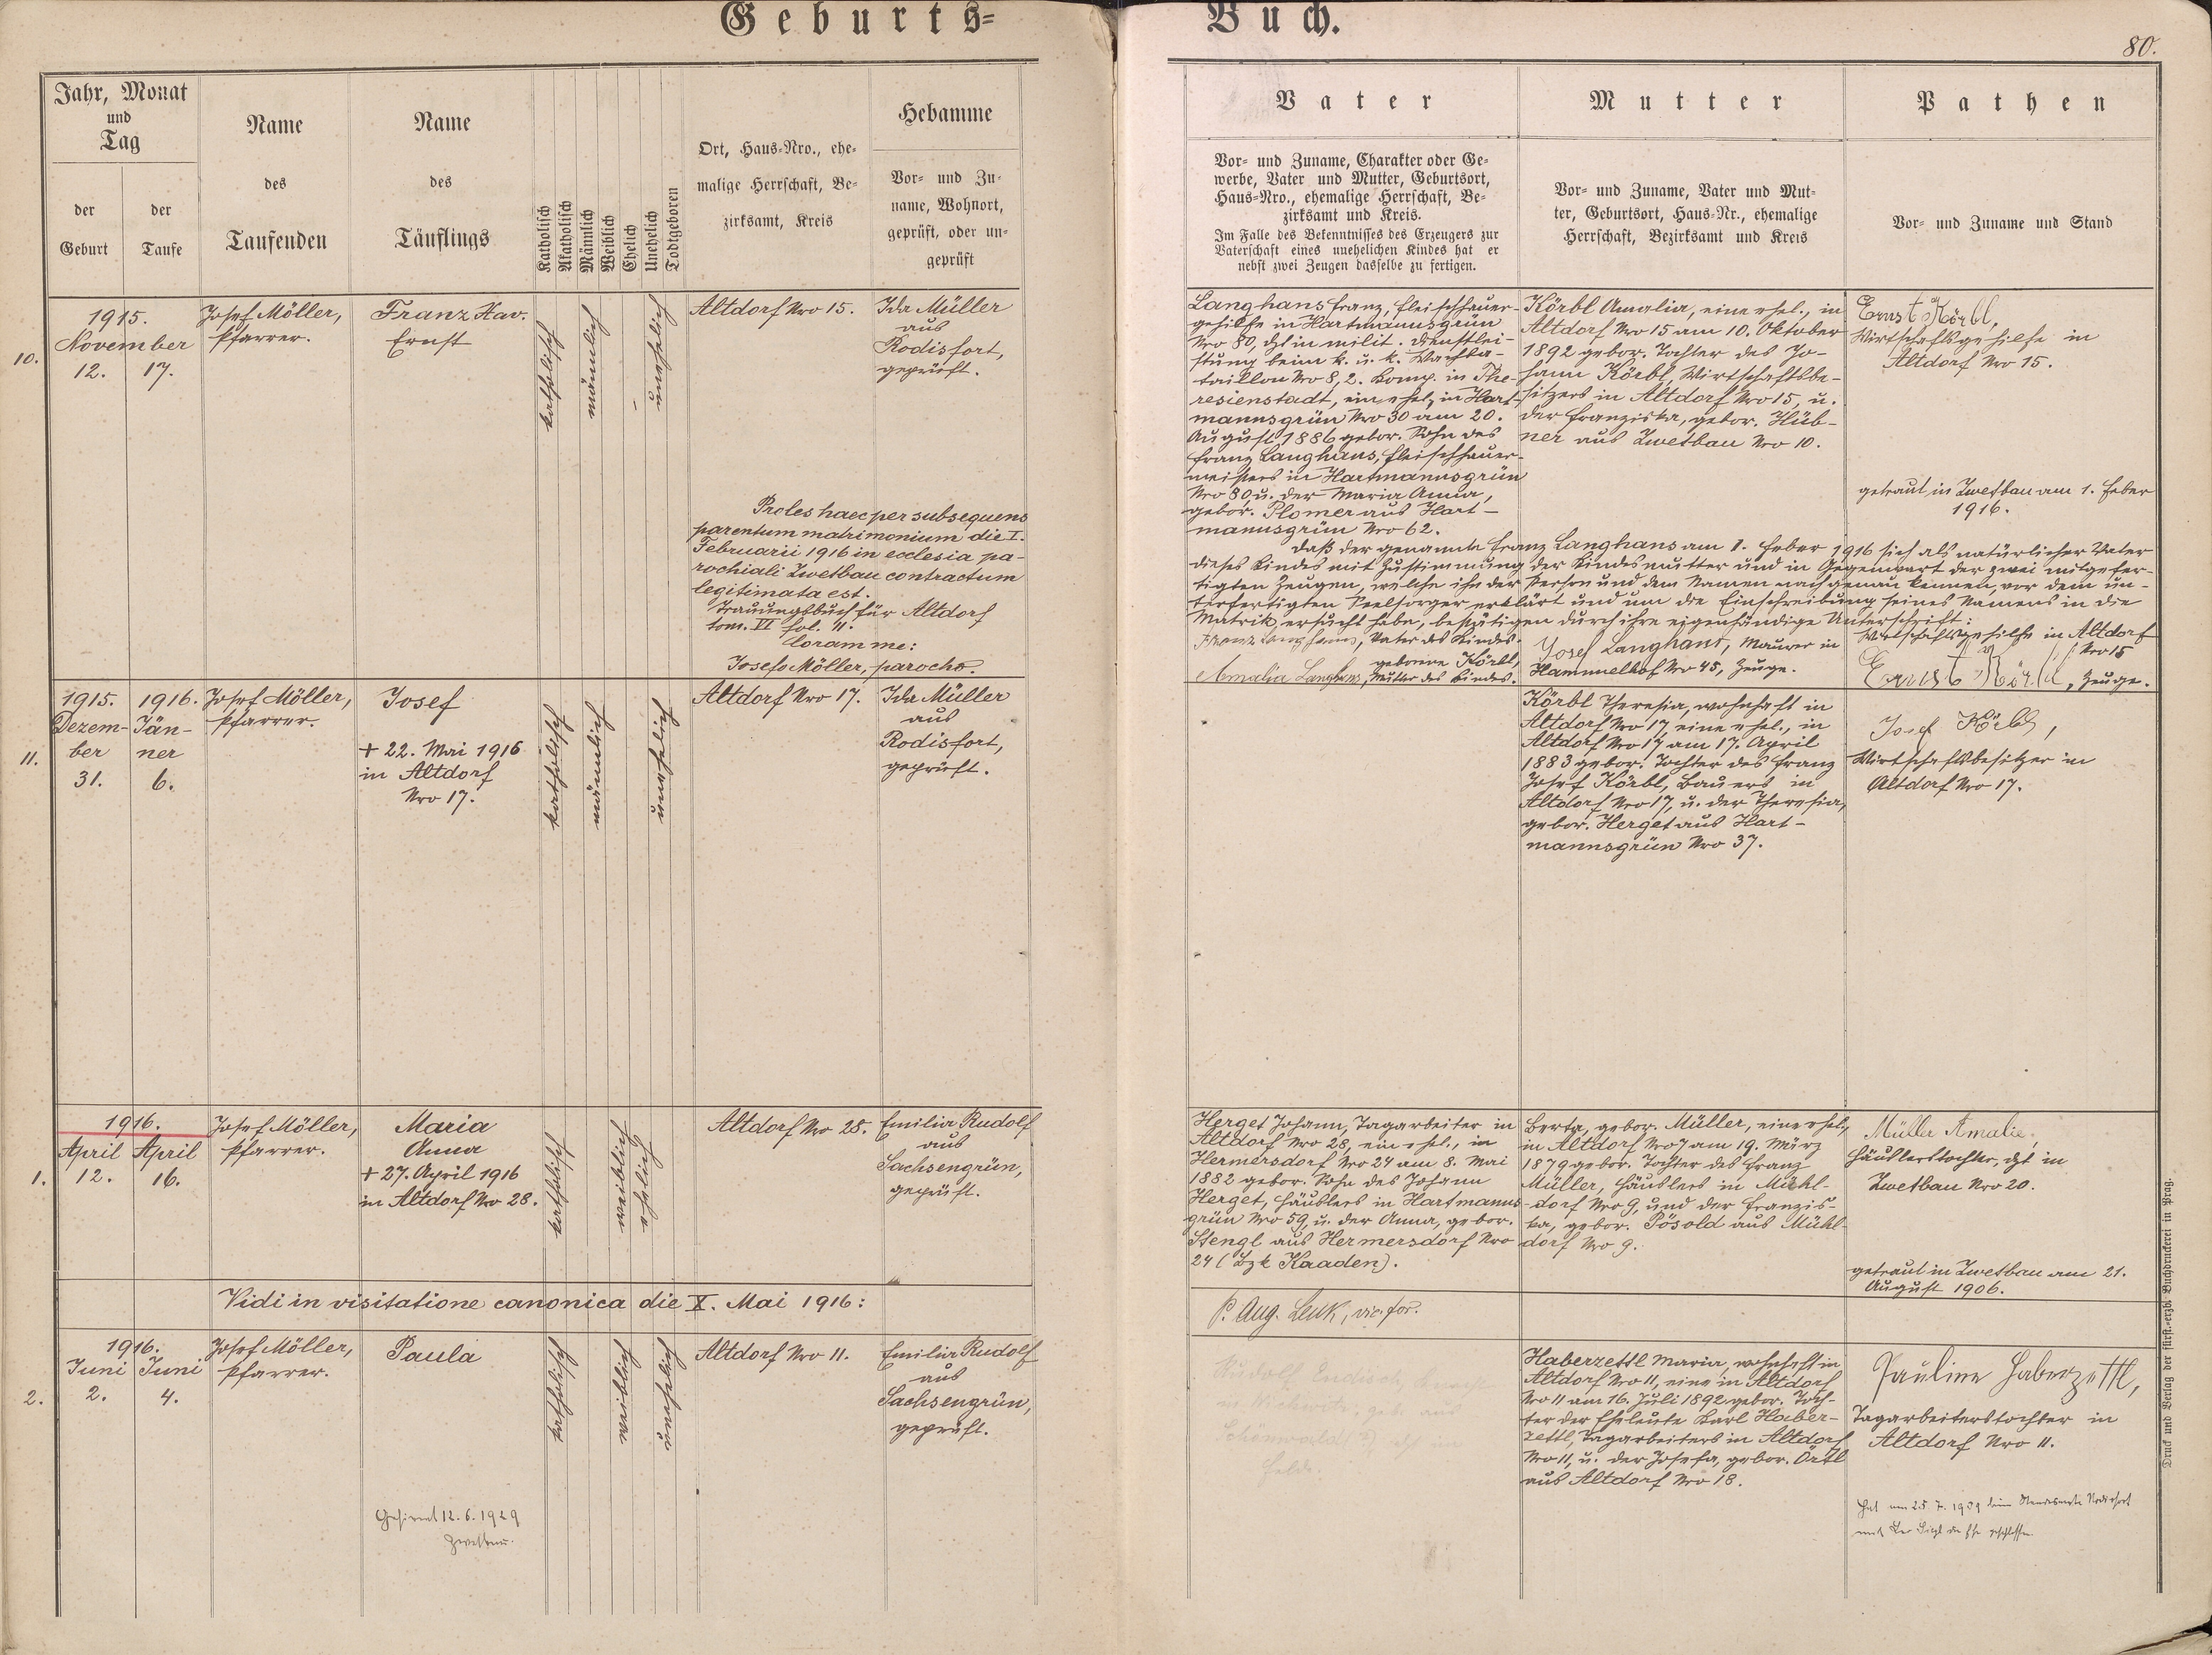 Geburts-
Buch.
80.
Jahr, Monat
und
Tag
der
Geburt
der
Taufe
Name
des
Taufenden
Name
des
Täuflings
Katholisch
Akatholisch
Männlich
Weiblich
Ehelich
Unehelich
Todtgeboren
Ort, Haus-Nro., ehe-
malige Herrschaft, Be-
zirksamt, Kreis
Hebamme
Vor- und Zu-
name, Wohnort,
geprüft, oder un-
geprüft
Vater
Vor- und Zuname, Charakter oder Ge-
werbe, Vater und Mutter, Geburtsort,
Haus-Nro., ehemalige Herrschaft, Be-
zirksamt und Kreis.
Im Falle des Bekenntnisses des Erzeugers zur
Vaterschaft eines unehelichen Kindes hat er
nebst zwei Zeugen dasselbe zu fertigen.
Mutter
Vor- und Zuname, Vater und Mut-
ter, Geburtsort, Haus-Nr., ehemalige
Herrschaft, Bezirksamt und Kreis
Pathen
Vor- und Zuname und Stand
10.
1915.
November
12. 17.
Josef Möller,
Pfarrer.
Franz Xav.
Ernst
katholisch
männlich
unehelich
Altdorf Nro 15.
Ida Müller
aus
Rodisfort,
geprüft.
Proles haec per subsequens
parentum matrimonium die I.
Februarii 1916 in ecclesia pa-
rochiali Zwetbau contractum
legitimata est.
Trauungsbuch für Altdorf
tom. VI fol. 11.
Coram me:
Josefo Möller, parocho.
Langhans Franz, Fleischhauer-
gehilfe in Hartmannsgrün
Nro 80, dzt in milit. Dienstlei-
stung beim k. u. k. Wachba-
taillon Nro 8, 2. Komp. in The-
resienstadt, ein ehel., in Hart-
mannsgrün Nro 30 am 20.
August 1886 gebor. Sohn des
Franz Langhans, Fleischhauer-
meisters in Hartmannsgrün
Nro 80, u. der Maria Anna,
gebor. Plomer aus Hart-
mannsgrün Nro 62.
Körbl Amalia, eine ehel., in
Altdorf Nro 15 am 10. Oktober
1892 gebor. Tochter des Jo-
hann Körbl, Wirtschaftsbe-
sitzers in Altdorf Nro 15, u.
der Franziska, gebor. Hüb-
ner aus Zwetbau Nro 10.
Ernst Körbl,
Wirtschaftsgehilfe in
Altdorf Nro 15.
getraut in Zwetbau am 1. Feber
1916.
Daß der genannte Franz Langhans am 1. Feber 1916 sich als natürlicher Vater
dieses Kindes mit Zustimmung der Kindesmutter und in Gegenwart der zwei mitgefer-
tigten Zeugen, welche ihn der Person und dem Namen nach genau kennen, vor dem un-
terfertigten Seelsorger erklärt und um die Einschreibung seines Namens in die
Matrik ersucht habe, bestätigen durch ihre eigenhändige Unterschrift:
Franz Langhans, Vater des Kindes.
Amalia Langhans, geborene Körbl,
Mutter des Kindes.
Josef Langhans, Maurer in
Hammelhof Nro 45, Zeuge.
Wirtschaftsgehilfe in Altdorf
Nro 15
Ernst Körbl, Zeuge.
11.
1915. 1916.
Dezem- Jän-
ber ner
31. 6.
Josef Möller,
Pfarrer.
Josef
+ 22. Mai 1916
in Altdorf
Nro 17.
katholisch
männlich
unehelich
Altdorf Nro 17.
Ida Müller
aus
Rodisfort,
geprüft.
Körbl Theresia, wohnhaft in
Altdorf Nro 17, eine ehel., in
Altdorf Nro 17 am 17. April
1883 gebor. Tochter des Franz
Josef Körbl, Bauers in
Altdorf Nro 17, u. der Theresia,
gebor. Herget aus Hart-
mannsgrün Nro 37.
Josef Körbl,
Wirtschaftsbesitzer in
Altdorf Nro 17.
1.
1916.
April April
12. 16.
Josef Möller,
Pfarrer.
Maria
Anna
+ 27. April 1916
in Altdorf Nro 28.
katholisch
weiblich
ehelich
Altdorf Nro 28.
Emilia Rudolf
aus
Sachsengrün,
geprüft.
Herget Johann, Tagarbeiter in
Altdorf Nro 28, ein ehel., in
Hermersdorf Nro 24 am 8. Mai
1882 gebor. Sohn des Johann
Herget, Häuslers in Hartmanns-
grün Nro 59, u. der Anna, gebor.
Stengl aus Hermersdorf Nro
24 (Bzk Kaaden).
Berta, gebor. Müller, eine ehel.,
in Altdorf Nro 7 am 19. März
1879 gebor. Tochter des Franz
Müller, Häuslers in Mühl-
dorf Nro 9, und der Franzis-
ka, gebor. Pösold aus Mühl-
dorf Nro 9.
Müller Amalie,
Häuslerstochter, dzt in
Zwetbau Nro 20.
getraut in Zwetbau am 21.
August 1906.
Vidi in visitatione canonica die X. Mai 1916:
P. Aug. Lenk, vic. for.
2.
1916.
Juni Juni
2. 4.
Josef Möller,
Pfarrer.
Paula
katholisch
weiblich
unehelich
Altdorf Nro 11.
Emilia Rudolf
aus
Sachsengrün,
geprüft.
Gefirmt 12. 6. 1929
Zwetbau.
Rudolf
Haberzettl Maria, wohnhaft in
Altdorf Nro 11, eine in Altdorf
Nro 11 am 16. Juli 1892 gebor. Toch-
ter der Eheleute Karl Haber-
zettl, Tagarbeiters in Altdorf
Nro 11, u. der Josefa, gebor. Örtl
aus Altdorf Nro 18.
Pauline Haberzettl,
Tagarbeiterstochter in
Altdorf Nro 11.
Hat am 25. 7. 1939 beim Standesamte
die Ehe geschlossen.
Druck und Verlag der fürst.-erzb. Buchdruckerei in Prag.